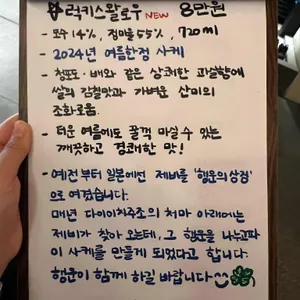 럭키스왈로우 NEW 8만원
- 도수 14%, 정미율 55%, 720ml
- 2024년 여름한정 사케
- 청포도·배와 같은 상쾌한 과실향에
쌀의 감칠맛과 가벼운 산미의
조화로움.
- 더운 여름에도 꿀꺽 마실 수 있는
깨끗하고 경쾌한 맛!
- 예전부터 일본에선 제비를 '행운의 상징'
으로 여겼습니다.
매년 다이이치주조의 처마 아래에는
제비가 찾아 오는데, 그 행운을 나누고파
이 사케를 만들게 되었다고 합니다.
행운이 함께 하길 바랍니다